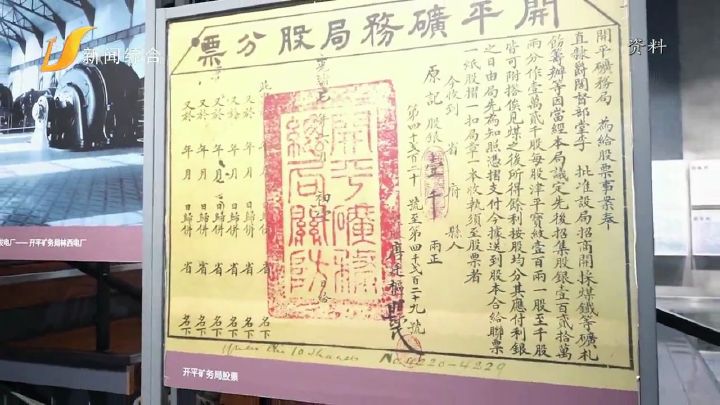 新闻综合
资料
開平礦務局股分票
開平礦務局 為給股票事案奉
直隸爵閣督部堂李 批准設局招商開採煤鐵等礦札
飭籌辦等因當經本局議定先後招集股銀壹百貳拾萬
兩分作壹萬貳千股每股津平寶紋壹百兩一股至千股
皆可附搭俟見煤之後所得餘利按股均分其應付利銀
之日由局先為知照憑摺支付今據送到股本合給聯票
一紙股摺一扣局章一本收執須至股票者
今收到 省 府 縣人
原記 股銀壹千 兩正
第四千貳百二十 號至第四千貳百二十九 號
開平礦務總局關防
又於 年 月 日歸併 省 名下
又於 年 月 日歸併 省 名下
又於 年 月 日歸併 省 名下
又於 年 月 日歸併 省 名下
No 4220-4229
开平矿务局股票
发电厂——开平矿务局林西电厂